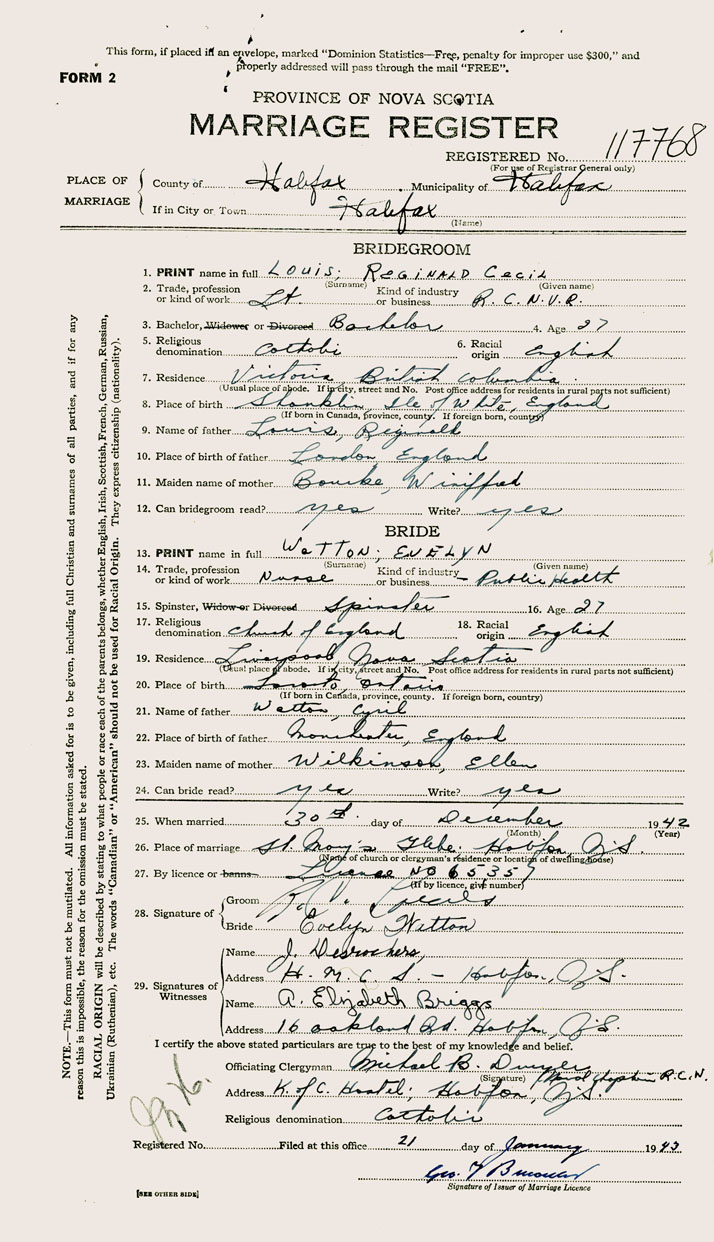 This form, if placed in an envelope, marked "Dominion Statistics—Free, penalty for improper use $300," and
properly addressed will pass through the mail "FREE".
FORM 2
PROVINCE OF NOVA SCOTIA
MARRIAGE REGISTER
REGISTERED No. 117768
(For use of Registrar General only)
PLACE OF MARRIAGE
County of Halifax. Municipality of Halifax
If in City or Town Halifax
(Name)
BRIDEGROOM
1. PRINT name in full LOUIS; REGINALD CECIL
(Surname) (Given name)
2. Trade, profession or kind of work Lt. Kind of industry or business R.C.N.V.R.
3. Bachelor, Widower or Divorced Bachelor 4. Age 27
5. Religious denomination Catholic 6. Racial origin English
7. Residence Victoria, British Columbia
(Usual place of abode. If in city, street and No. Post office address for residents in rural parts not sufficient)
8. Place of birth Shanklin, Isle of White, England
(If born in Canada, province, county. If foreign born, country)
9. Name of father Louis, Reginald
10. Place of birth of father London England
11. Maiden name of mother Bourke, Winiffred
12. Can bridegroom read? yes Write? yes
BRIDE
13. PRINT name in full WETTON; EVELYN
(Surname) (Given name)
14. Trade, profession or kind of work Nurse Kind of industry or business - Public Health
15. Spinster, Widow or Divorced Spinster 16. Age 27
17. Religious denomination Church of England 18. Racial origin English
19. Residence Liverpool, Nova Scotia
(Usual place of abode. If in city, street and No. Post office address for residents in rural parts not sufficient)
20. Place of birth Toronto, Ontario
(If born in Canada, province, county. If foreign born, country)
21. Name of father Wetton, Cyril
22. Place of birth of father Manchester, England
23. Maiden name of mother Wilkinson, Ellen
24. Can bride read? yes Write? yes
25. When married 30th day of December 1942
(Month) (Year)
26. Place of marriage St. Mary's Glebe, Halifax, N.S.
(Name of church or clergyman's residence or location of dwelling house)
27. By licence or banns License NO 65357
(If by licence, give number)
28. Signature of
Groom R.
Bride Evelyn Wetton
29. Signatures of Witnesses
Name J. Desrochers,
Address H.M.C.S. - Halifax, N.S.
Name A. Elizabeth Briggs
Address 16 Oakland Rd. Halifax, N.S.
I certify the above stated particulars are true to the best of my knowledge and belief.
Officiating Clergyman Michael B. Dwyer
(Signature) Naval Chaplain R.C.N.
Address K. of C. Hostel; Halifax, N.S.
Religious denomination Catholic
Registered No. Filed at this office 21 day of January 1943
Geo.
Signature of Issuer of Marriage Licence
[SEE OTHER SIDE]
NOTE.—This form must not be mutilated. All information asked for is to be given, including full Christian and surnames of all parties, and if for any
reason this is impossible, the reason for the omission must be stated.
RACIAL ORIGIN will be described by stating to what people or race each of the parents belongs, whether English, Irish, Scottish, French, German, Russian,
Ukrainian (Ruthenian), etc. The words "Canadian" or "American" should not be used for Racial Origin. They express citizenship (nationality).